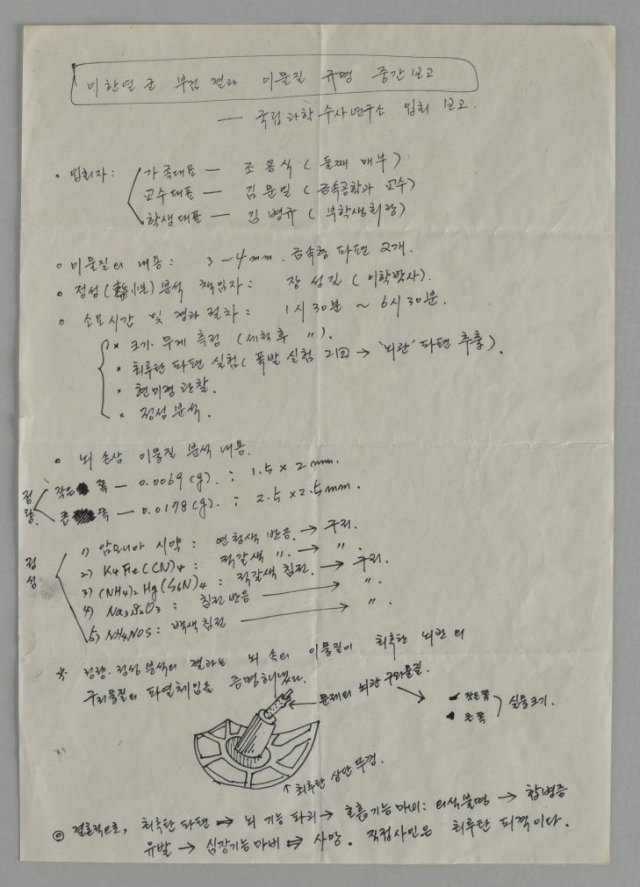 이한열 군 부검 결과 이물질 규명 중간보고
— 국립과학수사연구소 입회 보고.
• 입회자: 가족대표 — 조용식 (둘째 매부)
교수대표 — 김문일 (금속공학과 교수)
학생대표 — 김병규 (부학생회장)
o 이물질의 내용: 3~4mm. 금속형 파편 2개.
• 정성(定性) 분석 책임자: 장성길 (이학박사).
o 소요시간 및 경과 절차: 1시 30분 ~ 6시 30분.
* 크기. 무게 측정 (세척후 〃).
* 최루탄 파편 실험 (폭발 실험 2회 → '뇌관' 파편 추출).
* 현미경 관찰.
* 정성 분석.
o 뇌 손상 이물질 분석 내용.
정량. 작은 쪽 — 0.0069(g). ; 1.5 x 2mm.
큰 쪽 — 0.0178(g). ; 2.5 x 2.5mm.
정성 1) 암모니아 시약: 연청색 반응. → 구리.
2) K4Fe(CN)4: 적갈색 〃. → 〃.
3) (NH4)2Hg(SCN)4: 적갈색 침전. → 구리.
4) : 침전 반응 → 〃.
5) : 백색 침전 → 〃.
* 정량. 정성 분석의 결과는 뇌 속의 이물질이 최루탄 뇌관의
구리물질의 파열체임을 증명해냈다.
문제의 뇌관 구리물질.
작은쪽
큰쪽
실물크기.
↑ 최루탄 상단 뚜껑.
◎ 결론적으로, 최루탄 파편 → 뇌 기능 파괴 → 호흡기능마비: 의식불명 → 합병증
유발 → 심장기능마비 → 사망. 직접사인은 최루탄 피격이다.